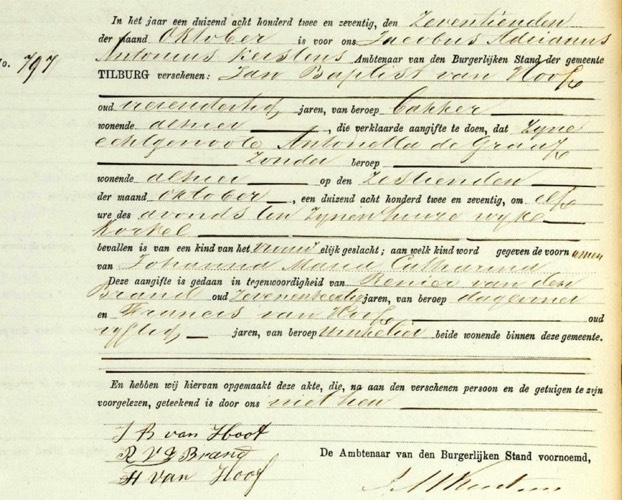 In het jaar een duizend acht honderd twee en zeventig, den Zeventienden
der maand Oktober is voor ons Jacobus Adrianus
No. 797
Antonius Ambtenaar van den Burgerlijken Stand der gemeente
TILBURG verschenen: Jan Baptist van Hoof
oud jaren, van beroep bakker
wonende alhier, die verklaarde aangifte te doen, dat Zyne
echtgenoote Antonetta de Graaf
Zonder beroep
wonende alhier op den Zestienden
der maand Oktober, een duizend acht honderd twee en zeventig, om elf
ure des avonds ten Zynen huize wyk
Korvel
bevallen is van een kind van het vrouwelijk geslacht; aan welk kind word gegeven de voornamen
van Johanna Maria Catharina
Deze aangifte is gedaan in tegenwoordigheid van Renier van den
Brand oud jaren, van beroep
en Francis van Hoof oud
vyftig jaren, van beroep winkelier beide wonende binnen deze gemeente.
En hebben wij hiervan opgemaakt deze akte, die, na aan den verschenen persoon en de getuigen te zijn
voorgelezen, geteekend is door ons met hen
J B van Hoof
R V D Brand
F van Hoof
De Ambtenaar van den Burgerlijken Stand voornoemd,